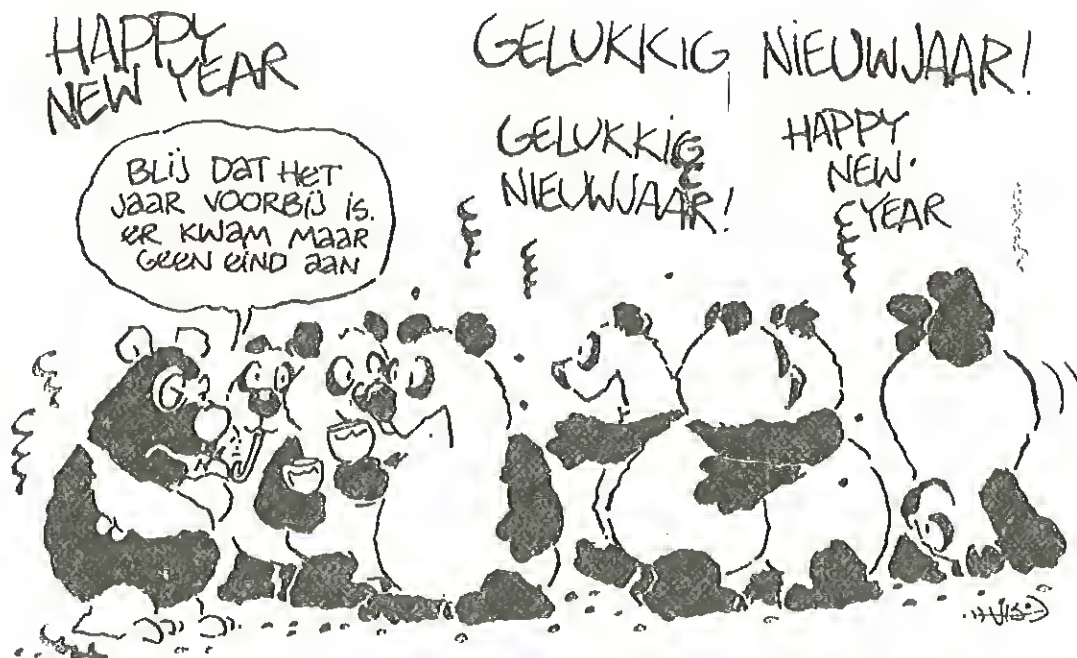 HAPPY
NEW YEAR
GELUKKIG NIEUWJAAR!
GELUKKIG
NIEUWJAAR!
HAPPY
NEW
YEAR
BLIJ DAT HET
JAAR VOORBIJ IS.
ER KWAM MAAR
GEEN EIND AAN